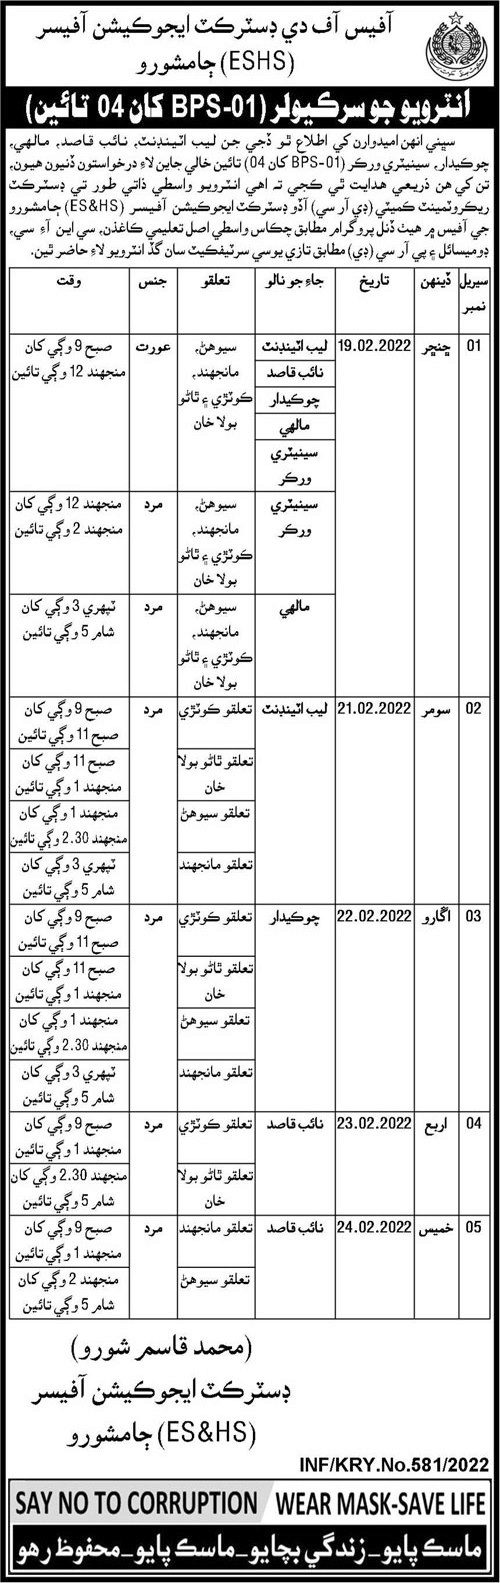 آفيس آف دي ڊسٽرڪٽ ايجوڪيشن آفيسر
(ESHS) ڄامشورو
انٽرويو جو سرڪيولر (BPS-01 کان 04 تائين)
سڀني انهن اميدوارن کي اطلاع ٿو ڏجي جن ليب اٽينڊنٽ، نائب قاصد، مالهي،
چوڪيدار، سينيٽري ورڪر (BPS-01 کان 04) تائين خالي جاين لاءِ درخواستون ڏنيون هيون،
تن کي هن ذريعي هدايت ٿي ڪجي ته اهي انٽرويو واسطي ذاتي طور تي ڊسٽرڪٽ
ريڪروٽمينٽ ڪميٽي (ڊي آر سي) آڏو ڊسٽرڪٽ ايجوڪيشن آفيسر (ES&HS) ڄامشورو
جي آفيس ۾ هيٺ ڏنل پروگرام مطابق چڪاس واسطي اصل تعليمي ڪاغذن، سي اين آءِ سي،
ڊوميسائل ۽ پي آر سي (ڊي) مطابق تازي يوسي سرٽيفڪيٽ سان گڏ انٽرويو لاءِ حاضر ٿين.
سيريل نمبر ڏينهن تاريخ جاءِ جو نالو تعلقو جنس وقت
01 ڇنڇر 19.02.2022 ليب اٽينڊنٽ سيوهڻ، مانجهند، ڪوٽڙي ۽ ٿاڻو بولا خان عورت صبح 9 وڳي کان منجهند 12 وڳي تائين
نائب قاصد
چوڪيدار
مالهي
سينيٽري ورڪر
سينيٽري ورڪر سيوهڻ، مانجهند، ڪوٽڙي ۽ ٿاڻو بولا خان مرد منجهند 12 وڳي کان منجهند 2 وڳي تائين
مالهي سيوهڻ، مانجهند، ڪوٽڙي ۽ ٿاڻو بولا خان مرد ٽپهري 3 وڳي کان شام 5 وڳي تائين
02 سومر 21.02.2022 ليب اٽينڊنٽ تعلقو ڪوٽڙي مرد صبح 9 وڳي کان صبح 11 وڳي تائين
تعلقو ٿاڻو بولا خان صبح 11 وڳي کان منجهند 1 وڳي تائين
تعلقو سيوهڻ منجهند 1 وڳي کان منجهند 2.30 وڳي تائين
تعلقو مانجهند ٽپهري 3 وڳي کان شام 5 وڳي تائين
03 اڱارو 22.02.2022 چوڪيدار تعلقو ڪوٽڙي مرد صبح 9 وڳي کان صبح 11 وڳي تائين
تعلقو ٿاڻو بولا خان صبح 11 وڳي کان منجهند 1 وڳي تائين
تعلقو سيوهڻ منجهند 1 وڳي کان منجهند 2.30 وڳي تائين
تعلقو مانجهند ٽپهري 3 وڳي کان شام 5 وڳي تائين
04 اربع 23.02.2022 نائب قاصد تعلقو ڪوٽڙي مرد صبح 9 وڳي کان منجهند 1 وڳي تائين
تعلقو ٿاڻو بولا خان منجهند 2.30 وڳي کان شام 5 وڳي تائين
05 خميس 24.02.2022 نائب قاصد تعلقو مانجهند مرد صبح 9 وڳي کان منجهند 1 وڳي تائين
تعلقو سيوهڻ منجهند 2 وڳي کان شام 5 وڳي تائين
(محمد قاسم شورو)
ڊسٽرڪٽ ايجوڪيشن آفيسر
(ES&HS) ڄامشورو
INF/KRY.No.581/2022
SAY NO TO CORRUPTION WEAR MASK-SAVE LIFE
ماسڪ پايو_زندگي بچايو_ماسڪ پايو_محفوظ رهو